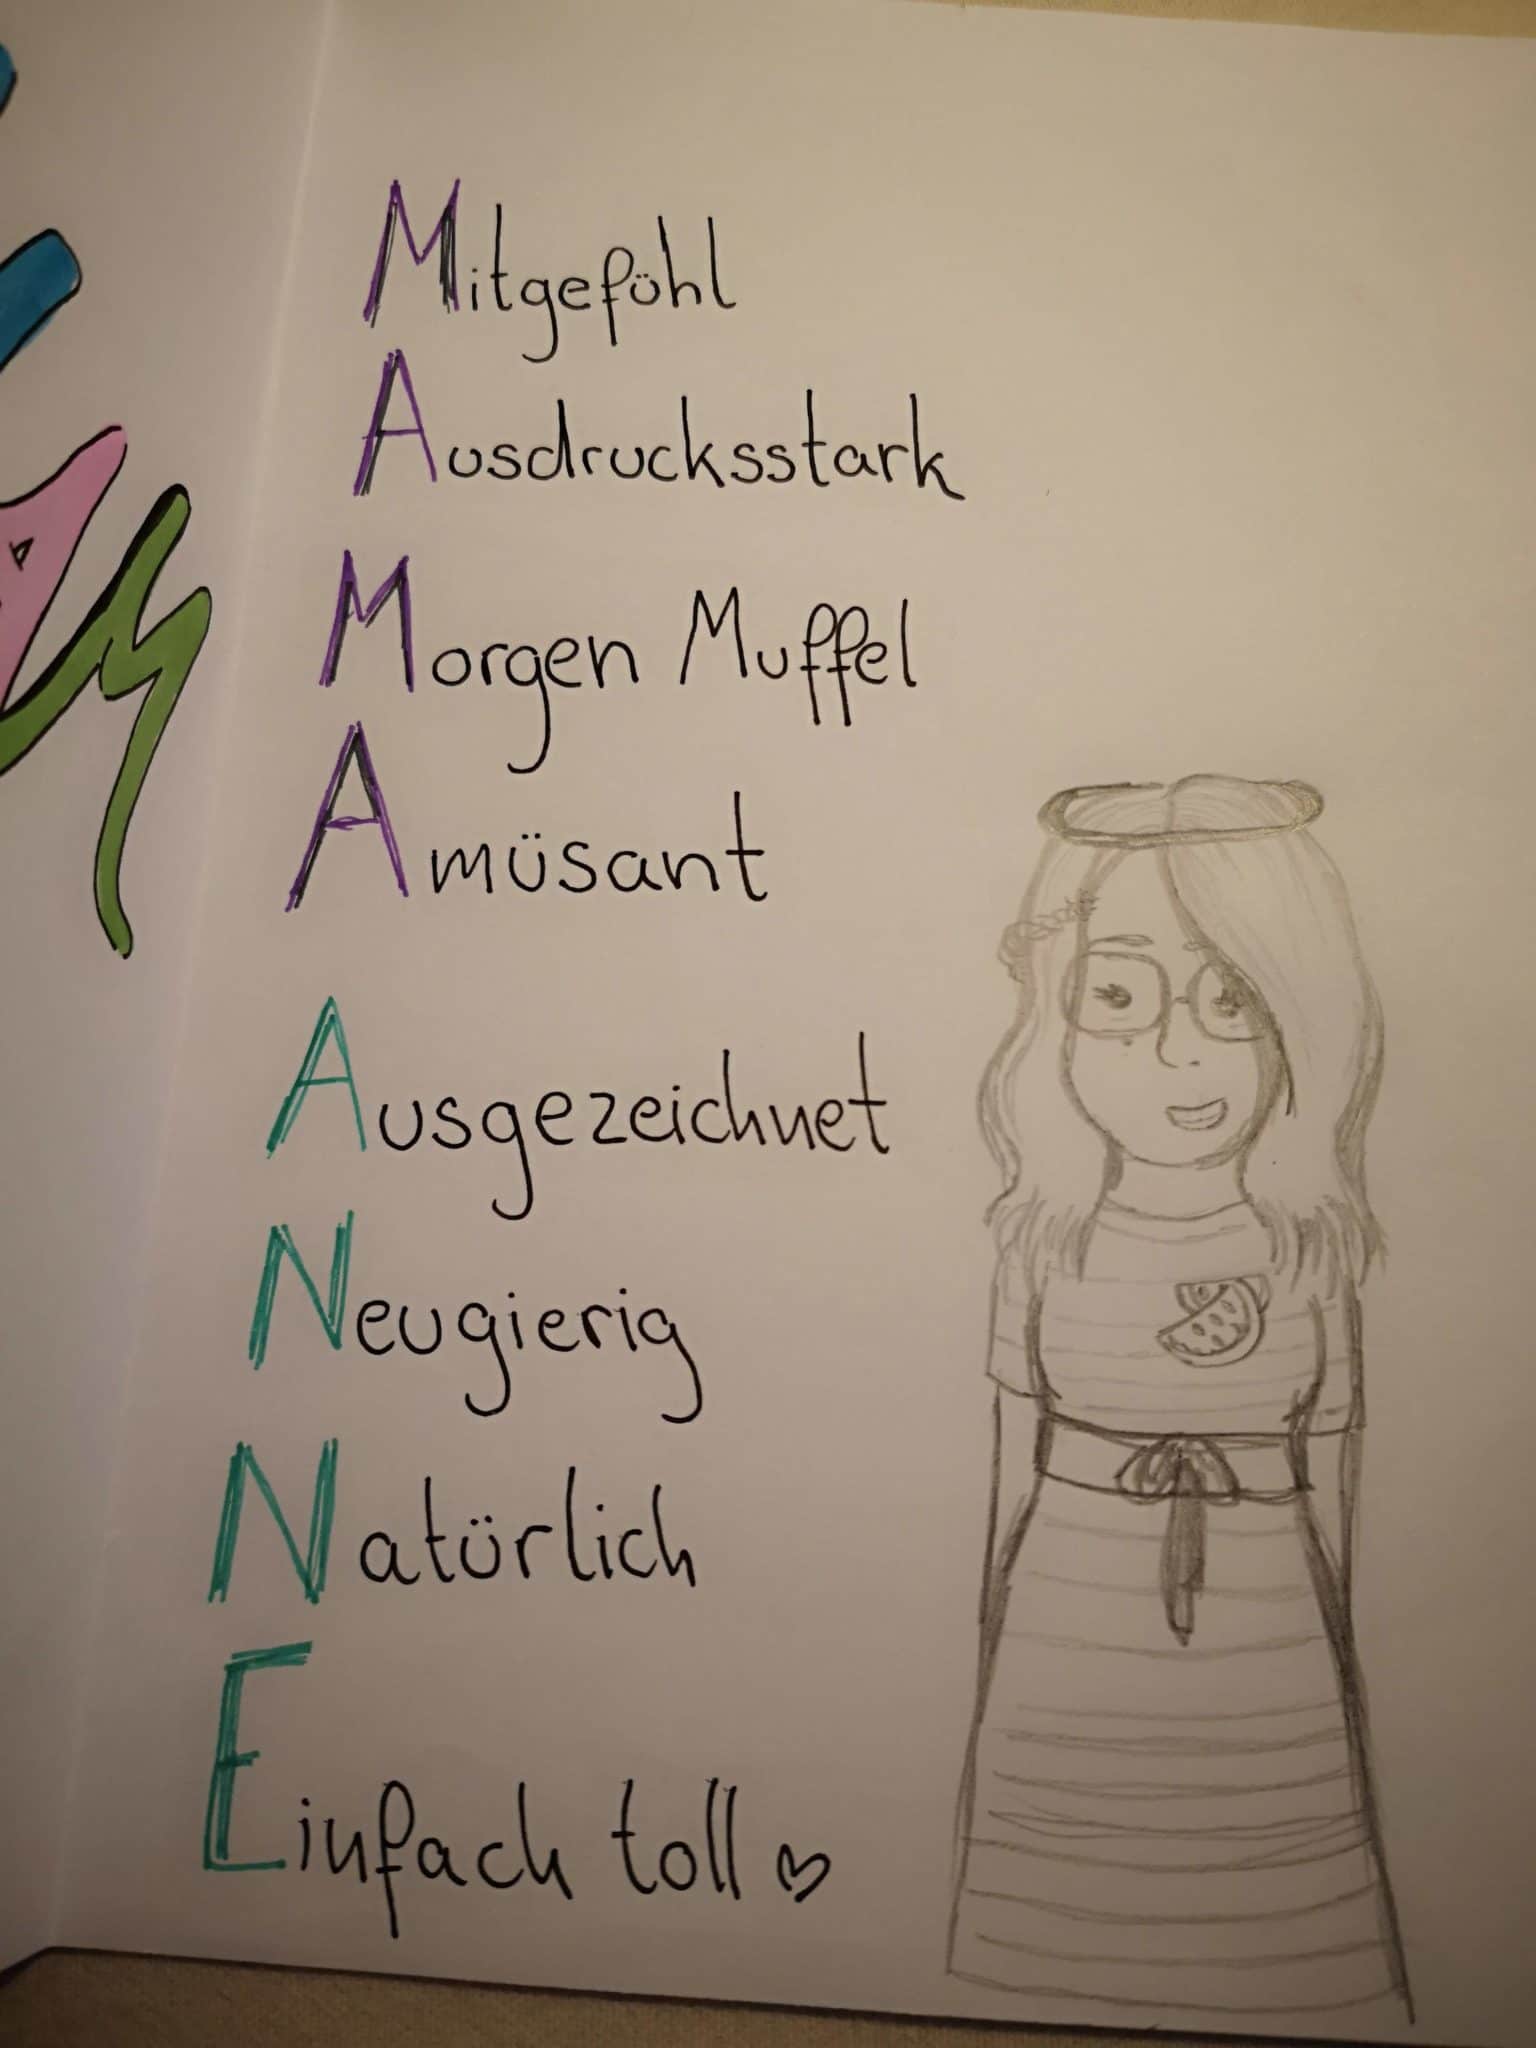 Mitgefühl
Ausdrucksstark
Morgen Muffel
Amüsant
Ausgezeichnet
Neugierig
Natürlich
Einfach toll ♡